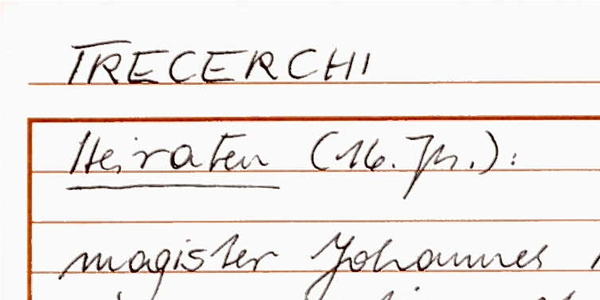 TRECERCHI
Heiraten (16. Jh.):
magister Johannes